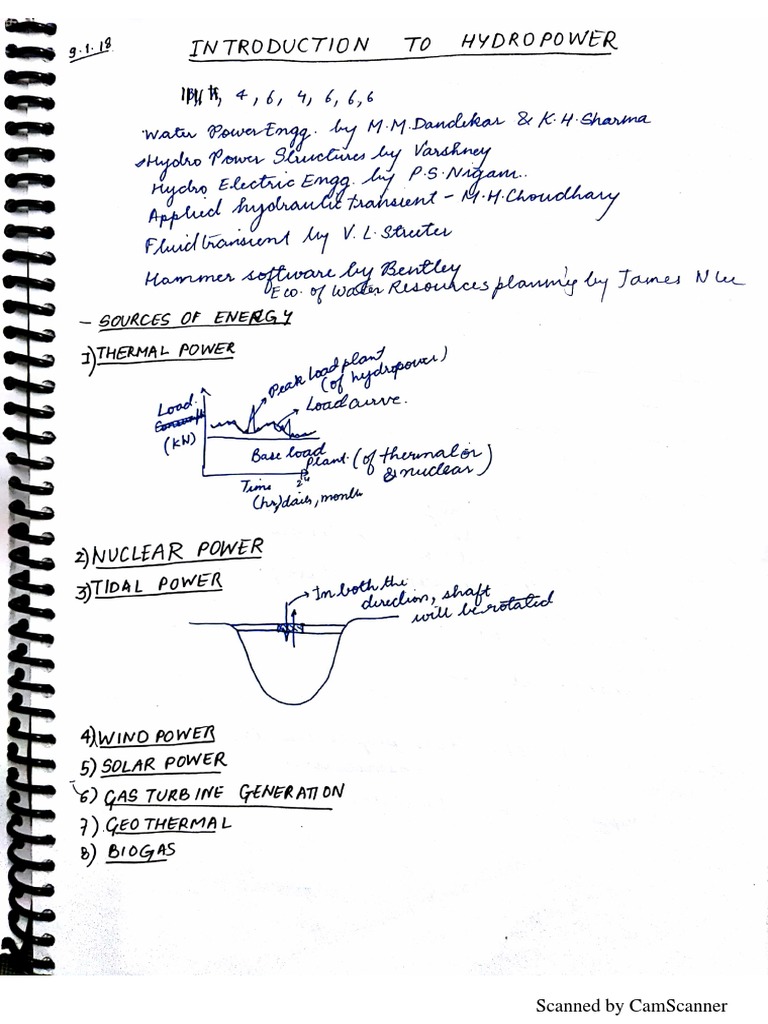 9.1.18
INTRODUCTION TO HYDROPOWER
4, 6, 4, 6, 6, 6
Water Power Engg. by M.M. Dandekar & K.H. Sharma
Hydro Power Structures by Varshney
Hydro Electric Engg. by P.S. Nigam..
Applied hydraulic transient - M.H. Choudhary
Fluid transient by V.L. Streeter
Hammer software by Bentley
Eco. of Water Resources planning by James N Lee
- SOURCES OF ENERGY
1) THERMAL POWER
Peak load plant
(of hydropower)
Load
Load curve.
(KW)
Base load
plant. (of thermal or
& nuclear)
Time
24
(hr) daies, month
2) NUCLEAR POWER
3) TIDAL POWER
In both the
direction, shaft
will be rotated
4) WIND POWER
5) SOLAR POWER
6) GAS TURBINE GENERATION
7) GEOTHERMAL
8) BIOGAS
Scanned by CamScanner